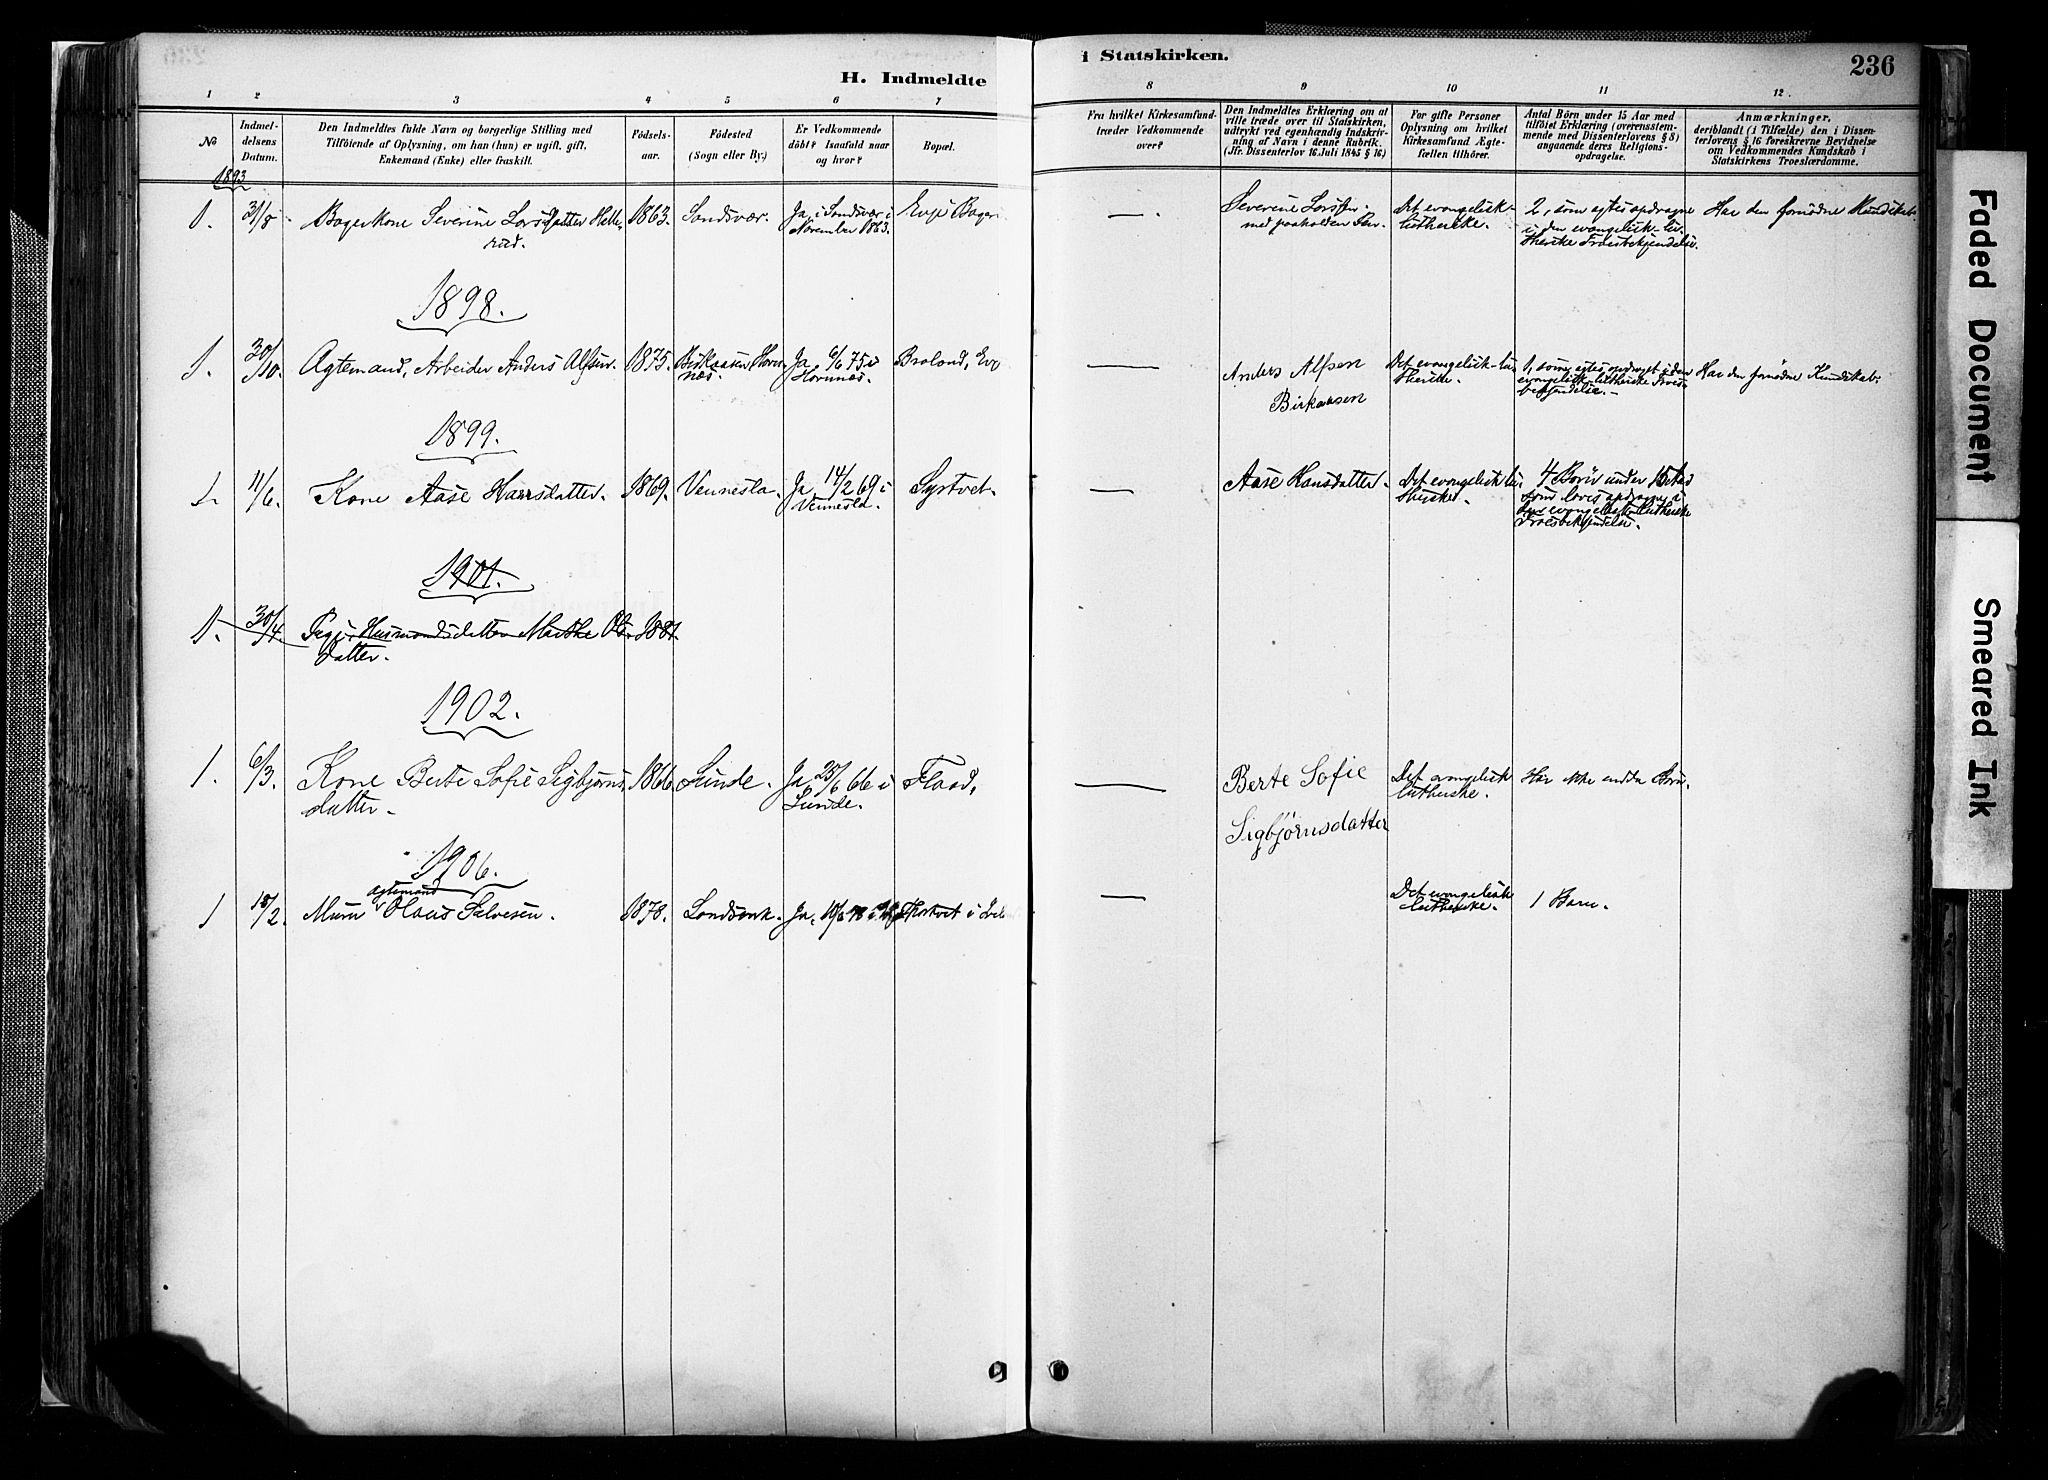 236
H. Indmeldte
i Statskirken.
1 2 3 4 5 6 7 8 9 10 11 12.
№
Indmel-
delsens
Datum.
Den Indmeldtes fulde Navn og borgerlige Stilling med
Tilföiende af Oplysning, om han (hun) er ugift, gift,
Enkemand (Enke) eller fraskilt.
Födsels-
aar.
Födested
(Sogn eller By.)
Er Vedkommende
döbt? Isaafald naar
og hvor?
Bopæl.
Fra hvilket Kirkesamfund
træder Vedkommende
over?
Den Indmeldtes Erklæring om at
ville træde over til Statskirken,
udtrykt ved egenhændig Indskriv-
ning af Navn i denne Rubrik.
(Jfr. Dissenterlov 16. Juli 1845 § 16.)
For gifte Personer
Oplysning om hvilket
Kirkesamfund Ægte-
fællen tilhörer.
Antal Börn under 15 Aar med
tilföiet Erklæring (overensstem-
mende med Dissenterlovens § 8)
angaaende deres Religions-
opdragelse.
Anmærkninger,
deriblandt (i Tilfælde) den i Dissen-
terlovens § 16 foreskrevne Bevidnelse
om Vedkommendes Kundskab i
Statskirkens Troeslærdomme.
1893
1. 31/8
Severine
rud.
1863.
Sandsvær.
Ja, i Sandsvær i
November 1863.
Evje
—
Severine
med paaholden Pen.
Det evangelisk-
lutherske.
2, som agtes opdragne
i den evangelisk-lu-
therske Troesbekjendelse.
Har den fornødne Kundskab.
1898.
1. 30/10.
Ægtemand, Arbeider Anders Alfsen.
1875.
Ja, 6/6 75 i
Hornnes.
—
Anders Alfsen
Birkaasen
Det evangelisk-lu-
therske.
1, som agtes opdraget i den
evangelisk-lutherske Troes-
bekjendelse.-
Har den fornødne Kundskab.
1899.
1. 11/6.
Kone Aase Hansdatter.
1869.
Vennesla.
Ja, 14/2 69 i
Vennesla.
Syrtvet.
—
Aase Hansdatter.
Det evangelisk lu-
therske.
4 Børn under 15 Aar
som loves opdragne i
den evangelisk-lutherske
Troesbekjendelse.
1901.
1. 30/4.
Pige, Husmandsdatter Marthe Ols-
datter.
1881.
1902.
1. 6/3.
Kone Berte Sofie Sigbjørns-
datter.
1866.
Lunde.
Ja 25/6 66 i
Lunde.
Flaad.
—
Berte Sofie
Sigbjørnsdatter
Det evangelisk
lutherske.
Har ikke endda Børn.
1906.
1 18/2.
Ægtemand
Murer Olaus Salvesen.
1878.
Ja,
—
Det evangelisk
lutherske.
1 Barn.
Faded Document
Smeared Ink